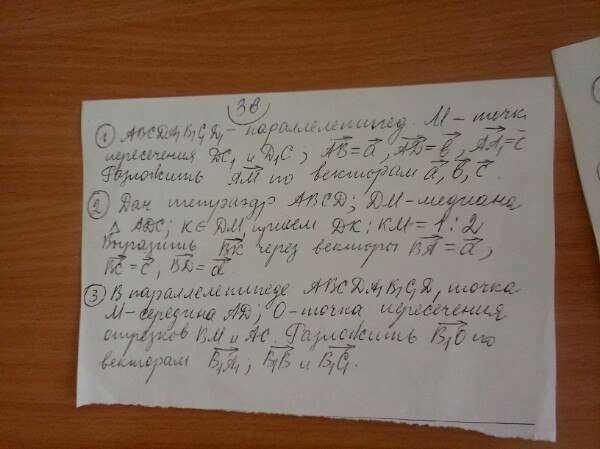 3в
① ABCDA₁B₁C₁D₁ - параллелепипед. M - точк.
пересечения DC₁ и D₁C; AB⃗ = a⃗, AD⃗ = в⃗, AA₁⃗ = c⃗
Разложить AM⃗ по векторам a⃗, в⃗, c⃗.
② Дан тетраэдр ABCD; DM - медиана
△ ADC; K ∈ DM, причем DK : KM = 1 : 2
Выразить BK⃗ через векторы BA⃗ = a⃗,
BC⃗ = c⃗, BD⃗ = d⃗
③ В параллелепипеде ABCDA₁B₁C₁D₁ точка
M - середина AD; O - точка пересечения
отрезков BM и AC. Разложить B₁O⃗ по
векторам B₁A₁⃗; B₁B⃗ и B₁C₁⃗.